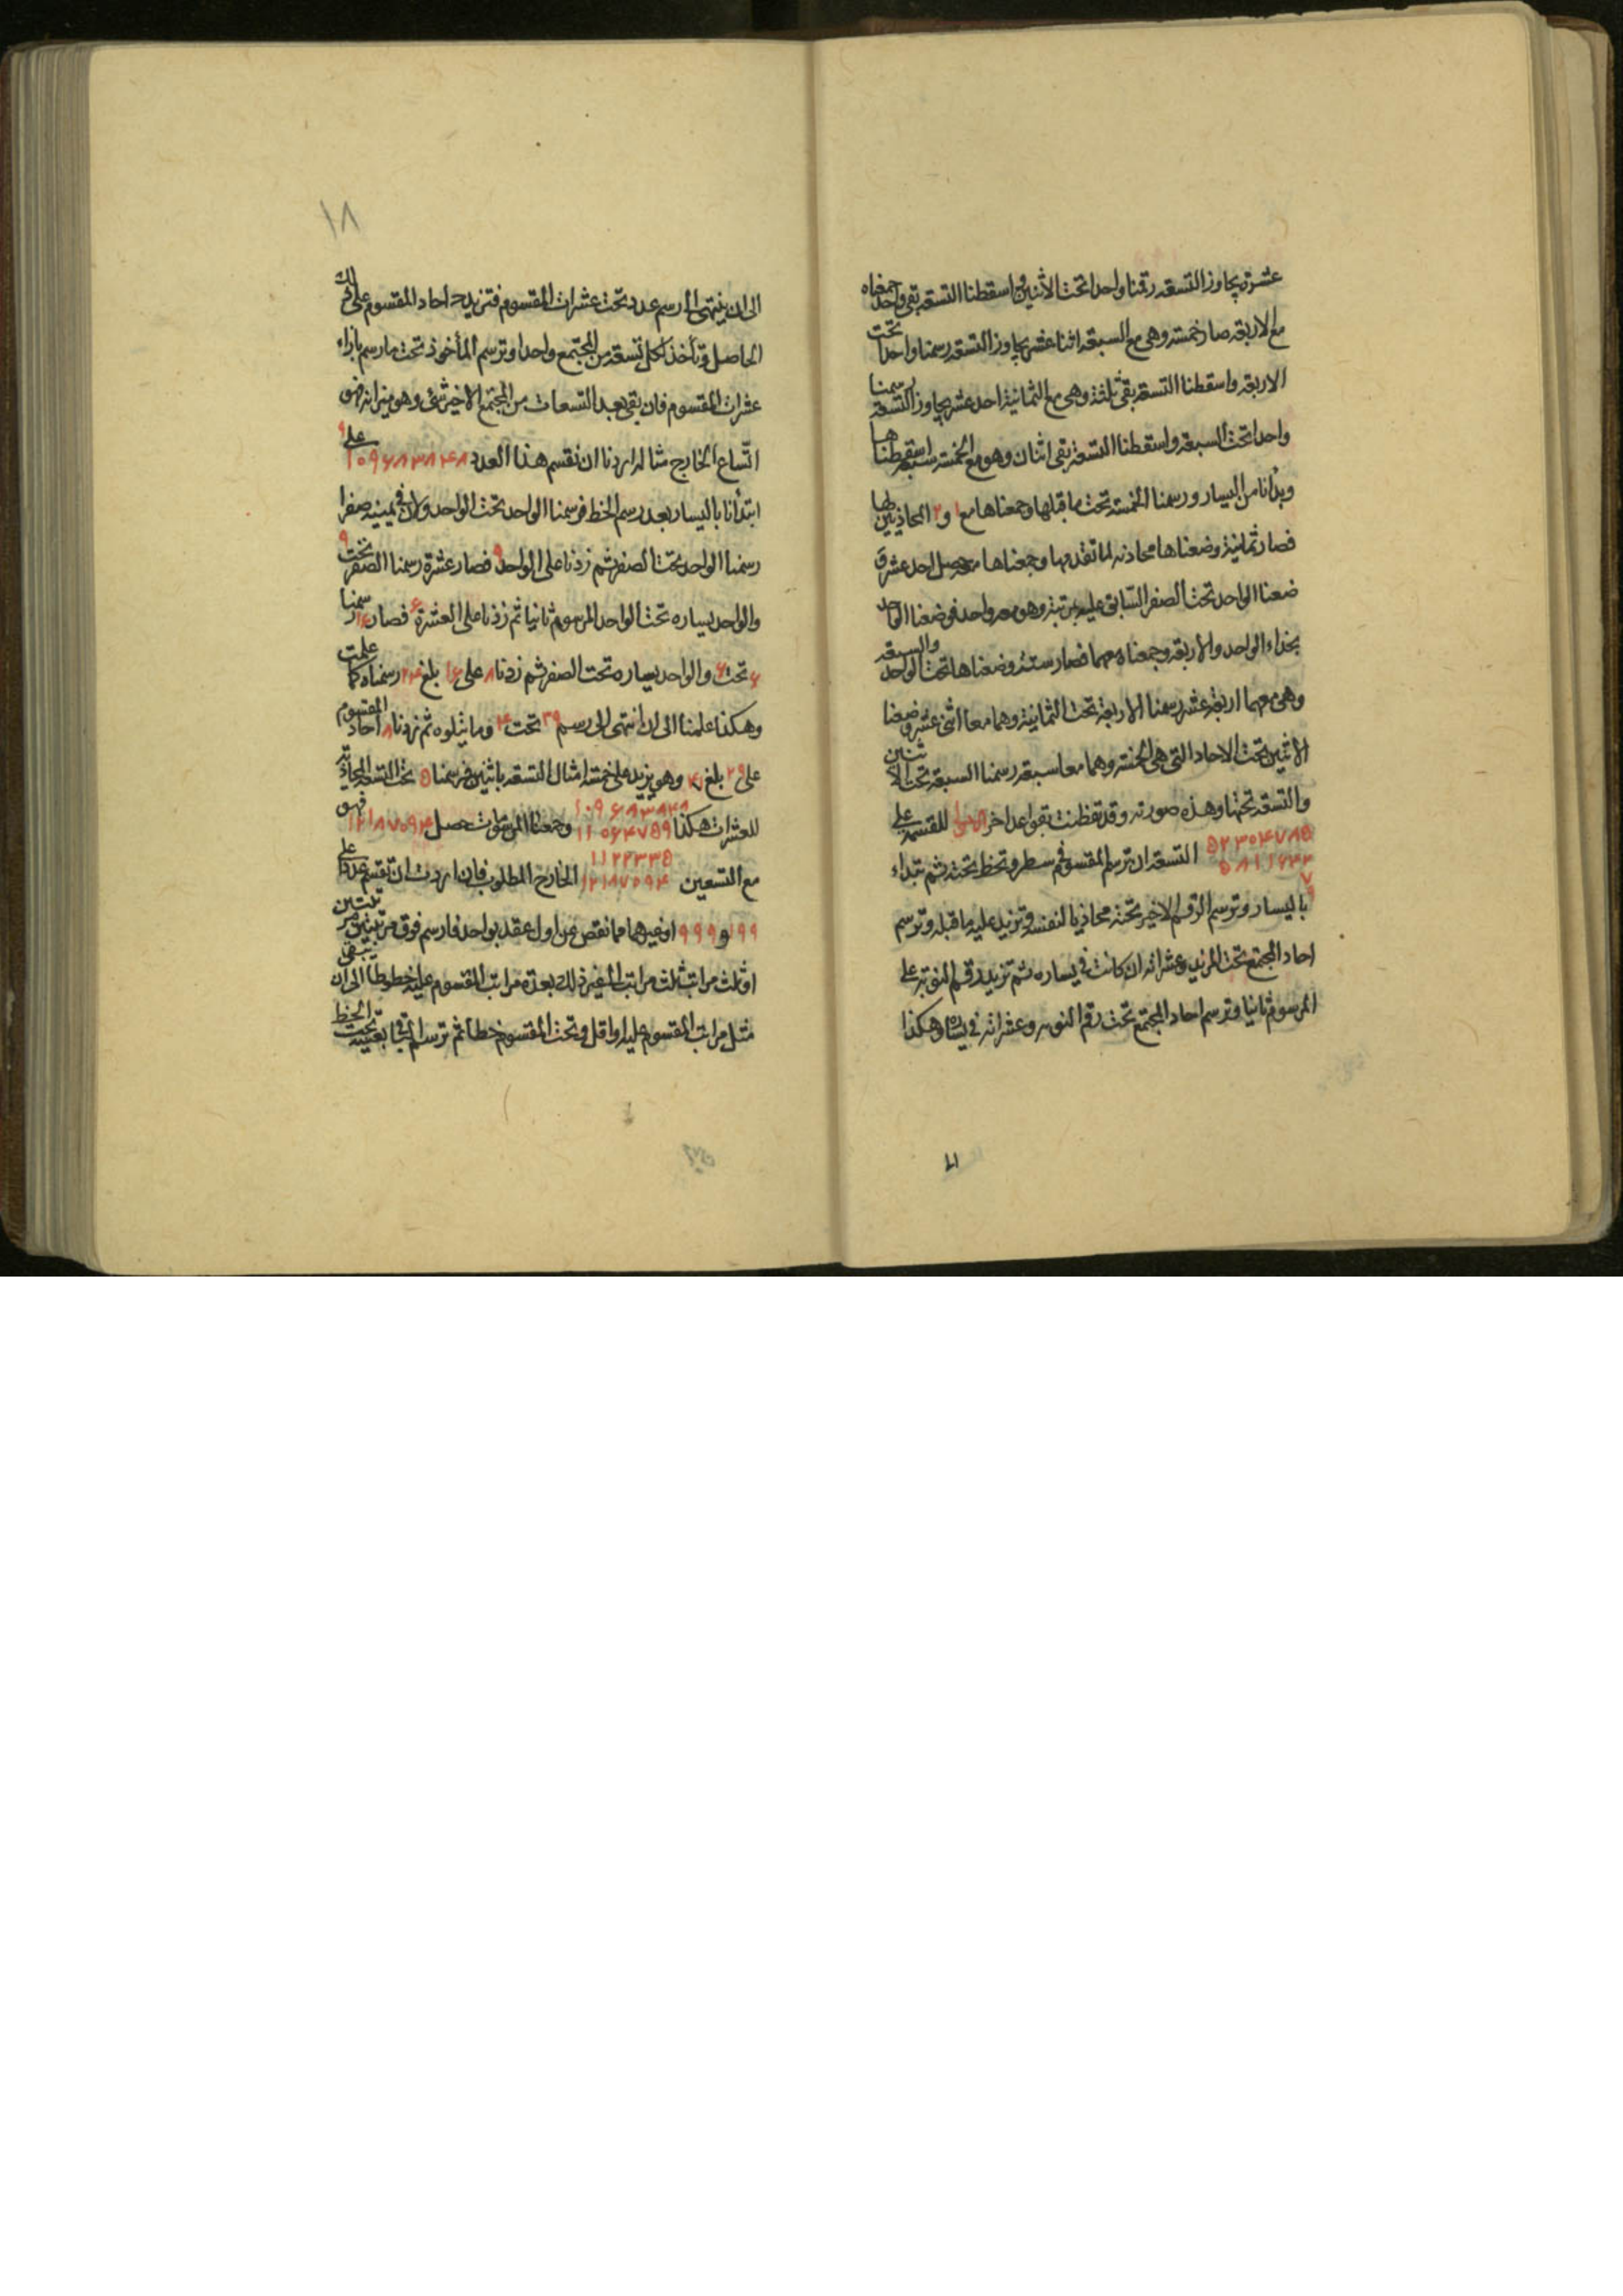 عشرة يجاوز التسعة رقمنا واحدا تحت الاثنين و اسقطنا التسعة بقى واحد جمعناه
مع الاربعة صار خمسة وهى مع السبعة اثنا عشر يجاوز التسعة رسمنا واحدا تحت
الاربعة واسقطنا التسعة بقى ثلثة وهى مع الثمانية احد عشر يجاوز التسعة رسمنا
واحدا تحت السبعة واسقطنا التسعة بقى اثنان وهو مع الخمسة سبعة اسقطناها
وبدأنا من اليسار ورسمنا الخمسة تحت ما قبلها وجمعناها مع ١ و ٢ المحاذيين لها
فصار ثمانية وضعناها محاذية لما تقدمها وجمعناها مع حصل احد عشر و
ضعنا الواحد تحت الصفر السابق عليه بمرتبة وهو مع واحد فوضعنا الواحد
بحذاء الواحد والاربعة وجمعناه معهما فصار ستة وضعناها تحت الواحد والسبعة
وهى معهما اربعة عشر رسمنا الاربعة تحت الثمانية وهما معا اثنى عشر وضعنا
الاثنين تحت الاحاد التى هى الخمسة وهما معا سبعة رسمنا السبعة تحت الاثنين
والتسعة تحتها وهذه صورته وقد تفطنت بقواعد اخر للقسمة على
٥٢٣٠٤٧٨٥ التسعة ان ترسم المقسوم فى سطر وتخط تحته ثم تبداء
٥٨١١٦٤٢
٧
٩
باليسار وترسم الرقم الاخير تحته محاذيا لنفسه وتزيد عليه ما قبله وترسم
احاد المجتمع تحت المزيد وعشراته ان كانت فى يساره ثم تزيد رقم النوبة على
المرسوم ثانيا وترسم احاد المجتمع تحت رقم النوبه وعشراته فى يساره وهكذا
١٨
الى ان ينتهى الى رسم عدد تحت عشرات المقسوم فتزيد احاد المقسوم على ذلك
الحاصل وتأخذ لكل تسعة من المجتمع واحدا وترسم المأخوذ تحت ما رسم بازاء
عشرات المقسوم فان بقى بعد التسعات من المجتمع الاخير شئ وهو ميزانه فهو
اتساع الخارج مثاله اردنا ان نقسم هذا العدد ١٠٩٦٨٣٨٤٨ على ٩
ابتدأنا باليسار بعد رسم الخط فرسمنا الواحد تحت الواحد ولان فى يمينه صفرا
رسمنا الواحد تحت الصفر ثم زدنا على الواحد ٩ فصار عشرة رسمنا الصفر تحت ٩
والواحد يساره تحت الواحد المرسوم ثانيا ثم زدنا على العشرة ٦ فصار ١٦ رسمنا
٦ تحت ٦ والواحد يساره تحت الصفر ثم زدنا ٨ على ١٦ بلغ ٢٤ رسمناه كما علمت
وهكذا علمنا الى ان انتهى الى رسم ٣٩ تحت ٤ وما يتلوه ثم زدنا ٨ احاد المقسوم
على ٣٩ بلغ ٤٧ وهو يزيد على خمسة امثال التسعة باثنين فرسمنا ٥ تحت التسعة المحاذية
للعشرات هكذا ١٠٩٦٨٣٨٤٨ وجمعنا المرسومات حصل ١٢١٨٧٠٩٤ فهو
١١٠٦٤٧٥٩
١١٢٢٣٣٥
مع التسعين ١٢١٨٧٠٩٤ الخارج المطلوب فان اردت ان تقسم عددا على
٩٩ و ٩٩٩ او غيرهما مما نقص عن اول عقد بواحد فارسم فوق مرتبتين مرتبتين
او ثلث مراتب ثلث مراتب الى غير ذلك بعدة مراتب المقسوم عليه خطوطا الى ان يبقى
مثل مراتب المقسوم عليه او اقل وتحت المقسوم خطا ثم ترسم الباقى بعينه تحت الخط